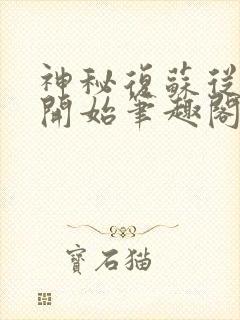 神秘復蘇從
開始筆趣閣
寶石猫